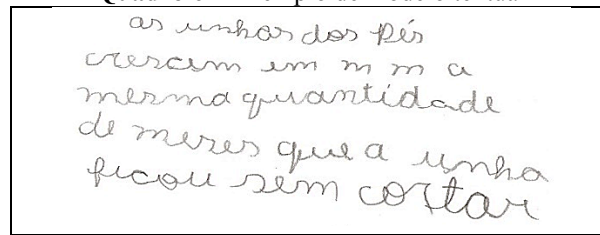 as unhas dos pés
crescem em m m a
mesma quantidade
de meses que a unha
ficou sem cortar